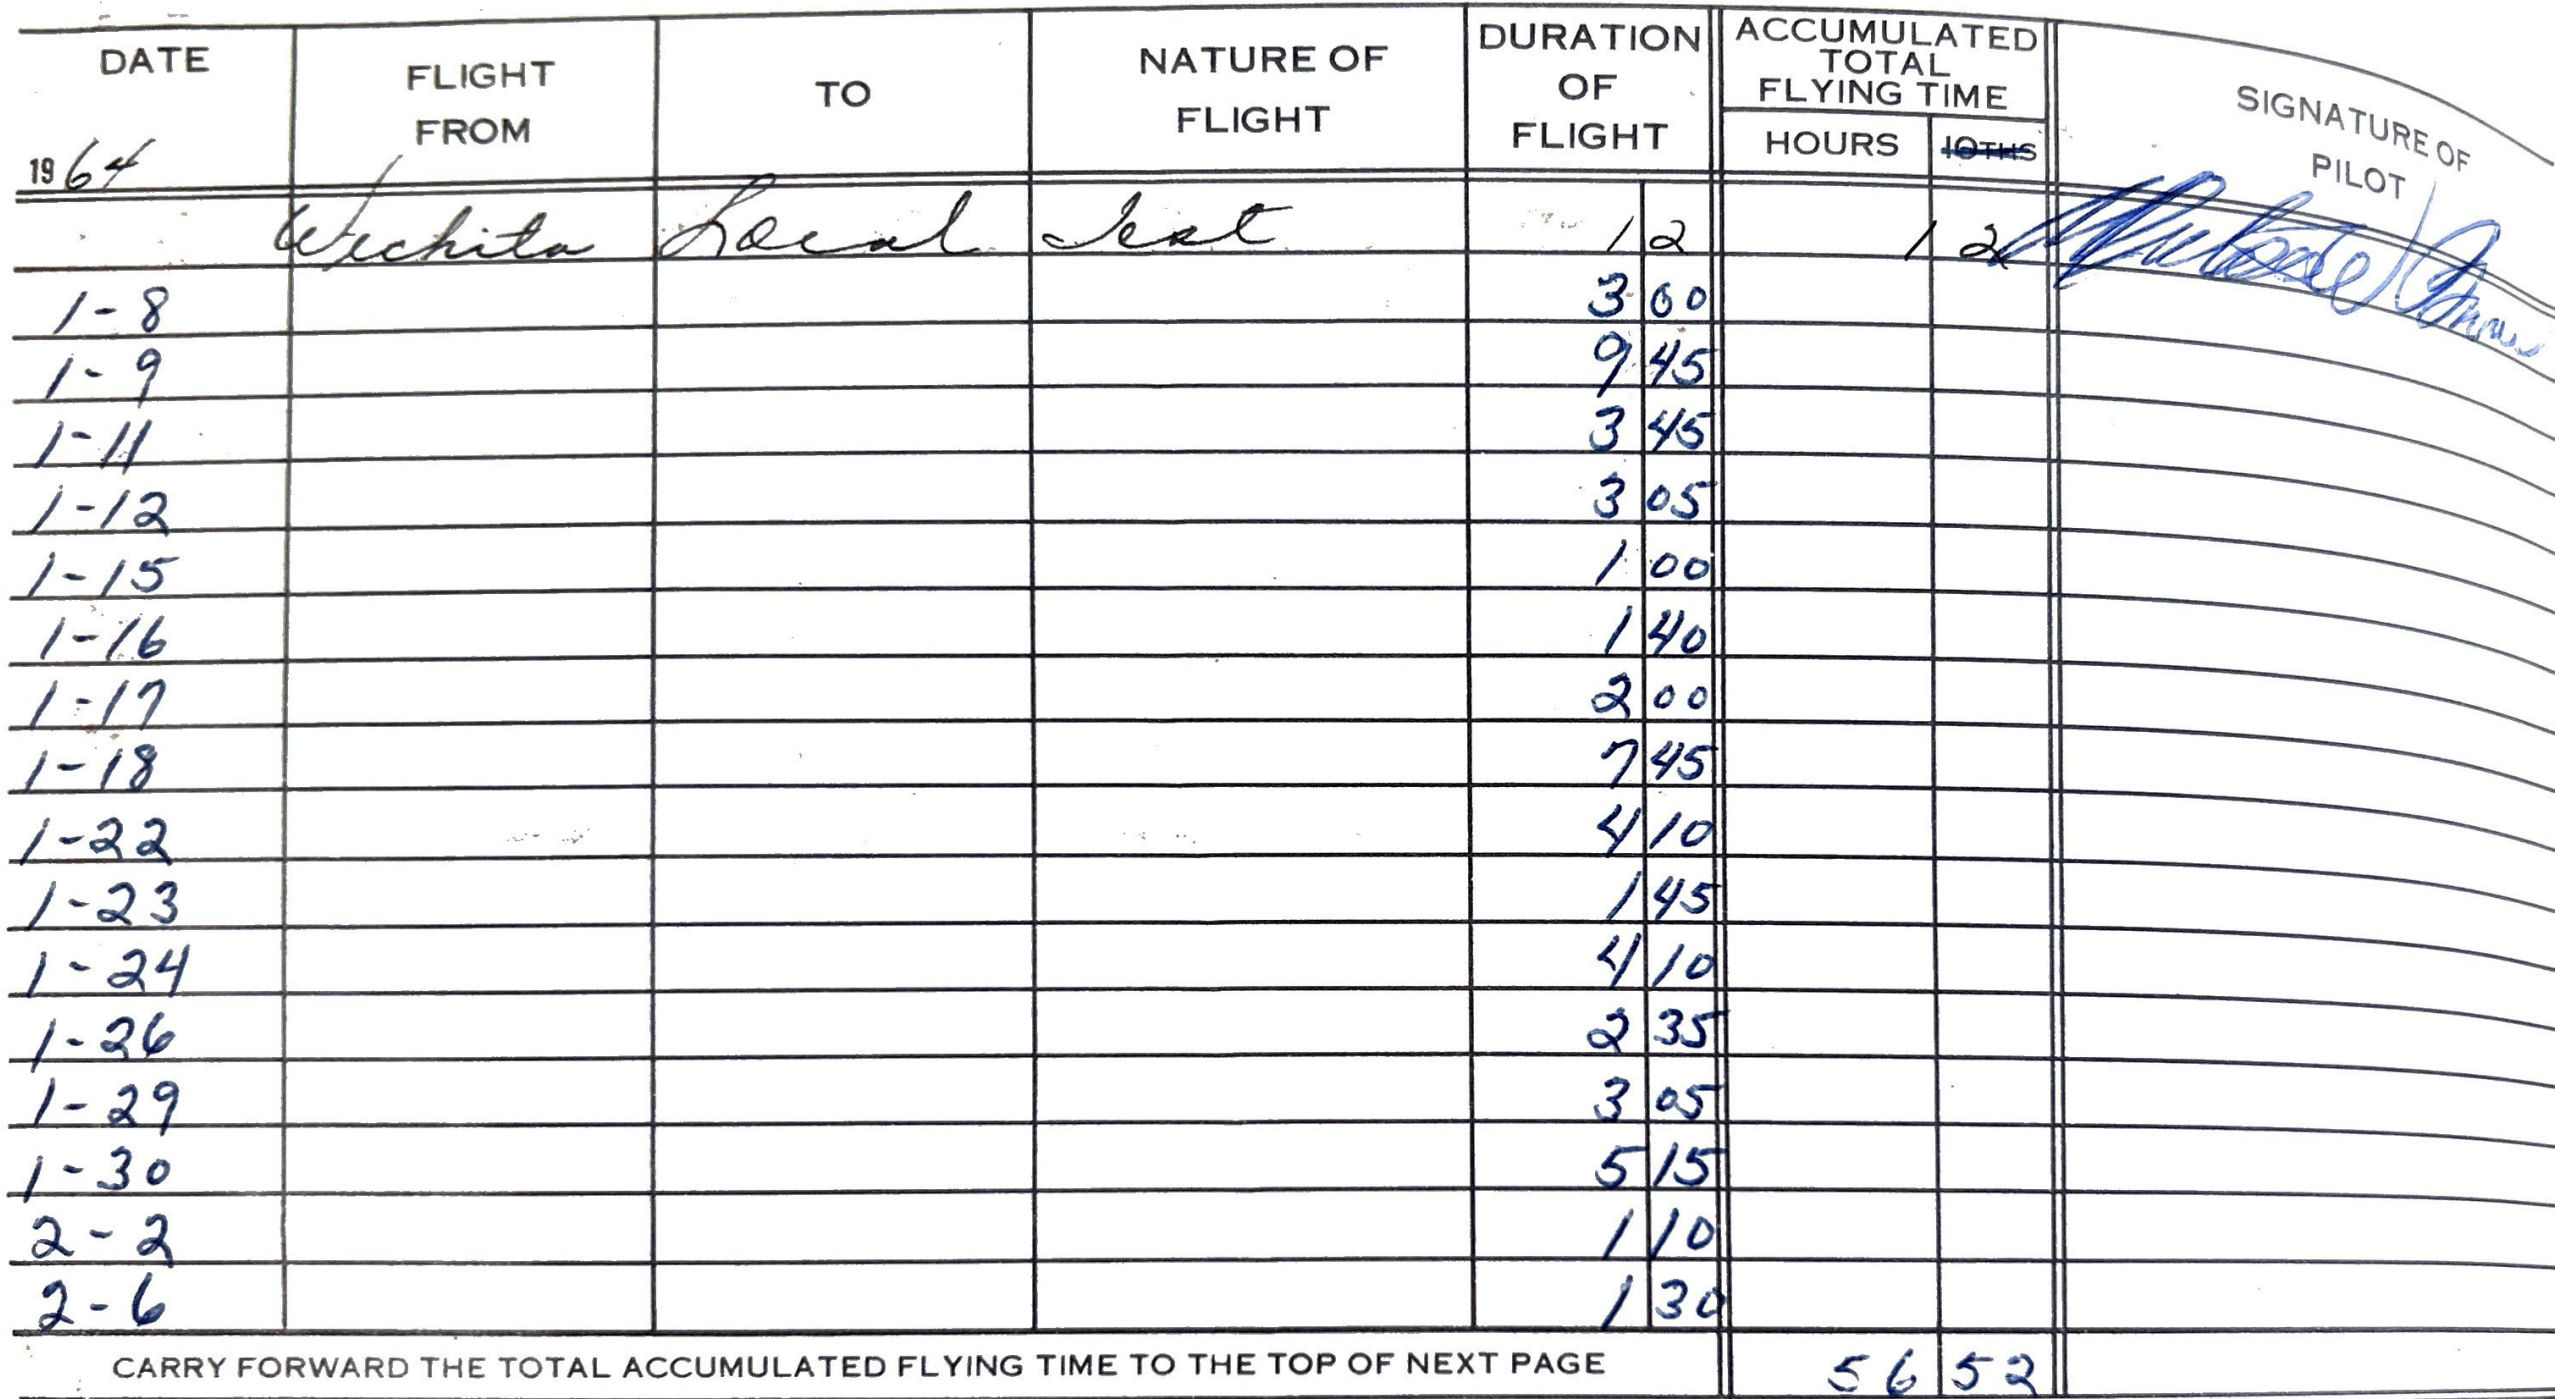 DATE FLIGHT FROM TO NATURE OF FLIGHT DURATION OF FLIGHT ACCUMULATED TOTAL FLYING TIME SIGNATURE OF PILOT
1964 HOURS 10THS
Wichita Local Test 1 2 1 2
1-8 3 00
1-9 9 45
1-11 3 45
1-12 3 05
1-15 1 00
1-16 1 40
1-17 2 00
1-18 7 45
1-22 4 10
1-23 1 45
1-24 4 10
1-26 2 35
1-29 3 05
1-30 5 15
2-2 1 10
2-6 1 30
CARRY FORWARD THE TOTAL ACCUMULATED FLYING TIME TO THE TOP OF NEXT PAGE 56 52